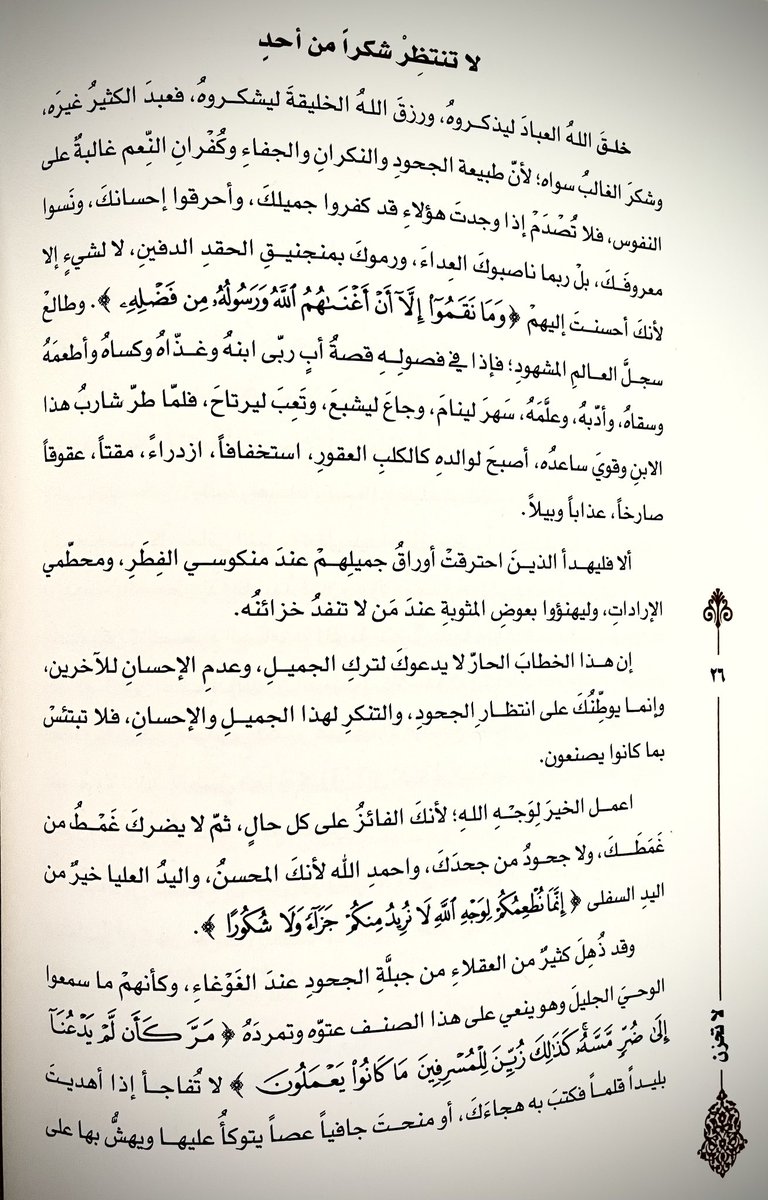 لا تنتظِرْ شكراً من أحدِ
خلقَ اللهُ العبادَ ليذكروهُ، ورزقَ اللهُ الخليقةَ ليشكروهُ، فعبدَ الكثيرُ غيرَه،
وشكرَ الغالبُ سواه؛ لأنّ طبيعة الجحودِ والنكرانِ والجفاءِ وكُفْرانِ النِّعم غالبةٌ على
النفوس، فلا تُصْدَمْ إذا وجدتَ هؤلاءِ قد كفروا جميلكَ، وأحرقوا إحسانكَ، ونَسوا
معروفَكَ، بلْ ربما ناصبوكَ العِداءَ، ورموكَ بمنجنيقِ الحقدِ الدفينِ، لا لشيءٍ إلا
لأنكَ أحسنتَ إليهمْ ﴿ وَمَا نَقَمُوٓا۟ إِلَّآ أَنْ أَغْنَىٰهُمُ ٱللَّهُ وَرَسُولُهُۥ مِن فَضْلِهِۦ ﴾. وطالعْ
سجلَّ العالمِ المشهودِ؛ فإذا في فصولِهِ قصةُ أبٍ ربّى ابنهُ وغذّاهُ وكساهُ وأطعمَهُ
وسقاهُ، وأدّبهُ، وعلَّمَهُ، سَهِرَ لينامَ، وجاعَ ليشبعَ، وتَعِبَ ليرتاحَ، فلمّا طرّ شاربُ هذا
الابنِ وقويَ ساعدُه، أصبحَ لوالدِهِ كالكلبِ العقورِ، استخفافاً، ازدراءً، مقتاً، عقوقاً
صارخاً، عذاباً وبيلاً.
ألا فليهدأ الذينَ احترقتْ أوراقُ جميلِهِمْ عندَ منكوسي الفِطَرِ، ومحطّمي
الإراداتِ، وليهنؤوا بعوضِ المثوبةِ عندَ مَن لا تنفدُ خزائنُه.
إن هذا الخطابَ الحارّ لا يدعوكَ لتركِ الجميلِ، وعدمِ الإحسانِ للآخرين،
وإنما يوطِّنُكَ على انتظارِ الجحودِ، والتنكرِ لهذا الجميلِ والإحسانِ، فلا تبتئسْ
بما كانوا يصنعون.
اعملِ الخيرَ لِوَجْهِ اللهِ؛ لأنكَ الفائزُ على كل حالٍ، ثمّ لا يضركَ غَمْطُ من
غَمَطَكَ، ولا جحودُ من جحدَكَ، واحمدِ الله لأنكَ المحسنُ، واليدُ العليا خيرٌ من
اليدِ السفلى ﴿ إِنَّمَا نُطْعِمُكُمْ لِوَجْهِ ٱللَّهِ لَا نُرِيدُ مِنكُمْ جَزَآءً وَلَا شُكُورًا ﴾.
وقد ذُهِلَ كثيرٌ من العقلاءِ من جبلَّةِ الجحودِ عندَ الغَوْغاءِ، وكأنهمْ ما سمعوا
الوحيَ الجليلَ وهو ينعي على هذا الصنفِ عتوّه وتمردَهُ ﴿ مَرَّ كَأَن لَّمْ يَدْعُنَآ
إِلَىٰ ضُرٍّ مَّسَّهُۥ ۚ كَذَٰلِكَ زُيِّنَ لِلْمُسْرِفِينَ مَا كَانُوا۟ يَعْمَلُونَ ﴾ لا تُفاجأ إذا أهديتَ
بليداً قلماً فكتبَ به هجاءَكَ، أو منحتَ جافياً عصاً يتوكأُ عليها ويهشُّ بها على
٢٦
لا تحزن